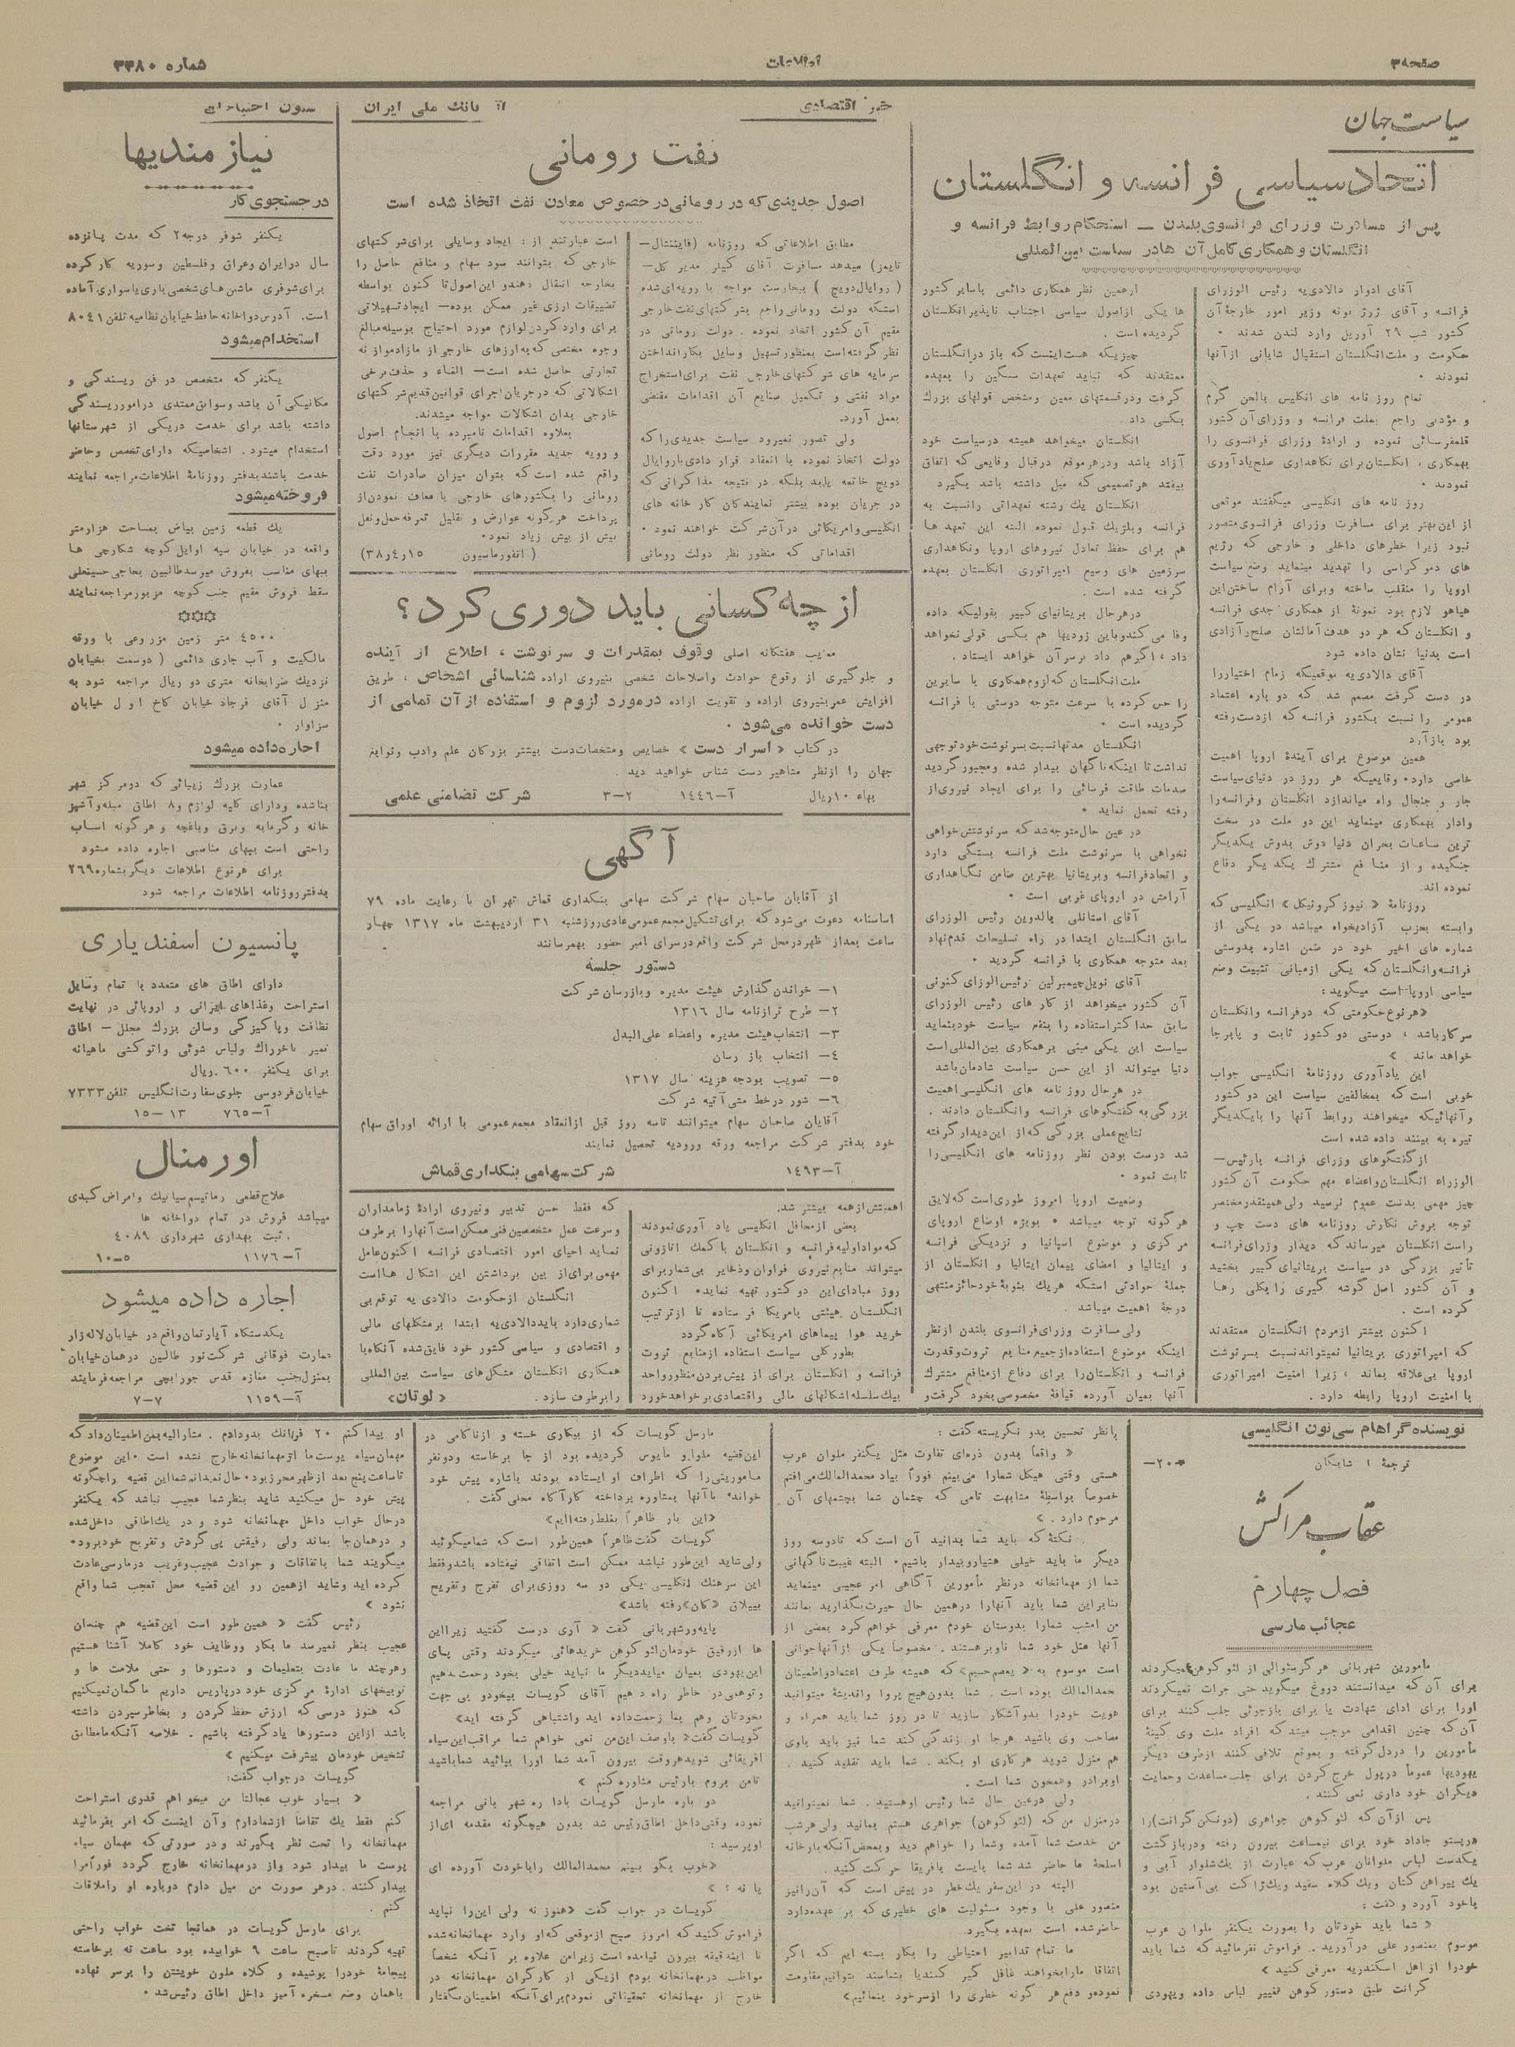 صفحه ۳
اطلاعات
شماره ۳۳۸۰
سیاست جهان
اتحاد سیاسی فرانسه و انگلستان
پس از مسافرت وزرای فرانسوی بلندن — استحکام روابط فرانسه و
انگلستان و همکاری کامل آن ها در سیاست بین المللی
آقای ادوار دالادیه رئیس الوزرای
فرانسه و آقای ژرژ بونه وزیر امور خارجهٔ آن
کشور شب ۲۹ آوریل وارد لندن شدند ۰
حکومت و ملت انگلستان استقبال شایانی از آنها
نمودند ۰
تمام روز نامه های انگلیس بالحن گرم
و مؤدبی راجع بملت فرانسه و وزرای آن کشور
قلمفرسائی نموده و ارادهٔ وزرای فرانسوی را
بهمکاری با انگلستان برای نگاهداری صلح یادآوری
نمودند ۰
روز نامه های انگلیسی میگفتند موقعی
از این بهتر برای مسافرت وزرای فرانسوی متصور
نبود زیرا خطرهای داخلی و خارجی که رژیم
های دموکراسی را تهدید مینماید وضع سیاست
اروپا را منقلب ساخته و برای آرام ساختن این
هیاهو لازم بود نمونهٔ از همکاری جدی فرانسه
و انگلستان که هر دو هدف آمالشان صلح و آزادی
است بدنیا نشان داده شود
آقای دالادیه موقعیکه زمام اختیار را
در دست گرفت مصمم شد که دو باره اعتماد
عمومی را نسبت بکشور فرانسه که از دست رفته
بود باز آرد
همین موضوع برای آیندهٔ اروپا اهمیت
خاصی دارد. وقایعیکه هر روز در دنیای سیاست
جار و جنجال راه میاندازد انگلستان و فرانسه را
وادار بهمکاری مینماید این دو ملت در سخت
ترین ساعات بحران دنیا دوش بدوش یکدیگر
جنگیده و از منافع مشترک یکدیگر دفاع
نموده اند.
روزنامهٔ « نیوز کرونیکل » انگلیسی که
وابسته بحزب آزادیخواه میباشد در یکی از
شماره های اخیر خود در ضمن اشاره بدوستی
فرانسه و انگلستان که یکی از مبانی تثبیت وضع
سیاسی اروپا است میگوید:
«هر نوع حکومتی که در فرانسه و انگلستان
سر کار باشد، دوستی دو کشور ثابت و پابرجا
خواهد ماند. »
این یادآوری روزنامهٔ انگلیسی جواب
خوبی است که بمخالفین سیاست این دو کشور
و آنهائیکه میخواهند روابط آنها را بایکدیگر
تیره به بینند داده شده است
از گفتگوهای وزرای فرانسه با رئیس—
الوزراء انگلستان و اعضاء مهم حکومت آن کشور
چیز مهمی بدست عموم نرسید ولی همینقدر مختصر
توجه بروش نگارش روزنامه های دست چپ و
راست انگلستان میرساند که دیدار وزرای فرانسه
تأثیر بزرگی در سیاست بریتانیای کبیر بخشید
و آن کشور اصل گوشه گیری را بکلی رها
کرده است .
اکنون بیشتر از مردم انگلستان معتقدند
که امپراتوری بریتانیا نمیتواند نسبت بسرنوشت
اروپا بی علاقه بماند ، زیرا امنیت امپراتوری
با امنیت اروپا رابطه دارد .
از همین نظر همکاری دائمی با سایر کشور
ها یکی از اصول سیاسی اجتناب ناپذیر انگلستان
گردیده است .
چیزیکه هست اینست که باز در انگلستان
معتقدند که نباید تعهدات سنگین را بعهده
گرفت و در قسمتهای معین و مشخص قولهای بزرگ
بکسی داد
انگلستان میخواهد همیشه در سیاست خود
آزاد باشد و در هر موقع در قبال وقایعی که اتفاق
بیفتد هر تصمیمی که میل داشته باشد بگیرد
انگلستان یک رشته تعهداتی را نسبت به
فرانسه و بلژیک قبول نموده البته این تعهدها
هم برای حفظ تعادل نیروهای اروپا و نگاهداری
سرزمین های وسیع امپراتوری انگلستان بعهده
گرفته شده است .
در هر حال بریتانیای کبیر بقولیکه داده
وفا می کند و باین زودیها هم بکسی قولی نخواهد
داد ، اگر هم داد بر سر آن خواهد ایستاد .
ملت انگلستان که لزوم همکاری با سایرین
را حس کرده با سرعت متوجه دوستی با فرانسه
گردیده است ۰
انگلستان مدتها نسبت بسرنوشت خود توجهی
نداشت تا اینکه ناگهان بیدار شده و مجبور گردید
صدمات طاقت فرسائی را برای ایجاد نیروی از
رفته تحمل نماید ۰
در عین حال متوجه شد که سرنوشتش خواهی
نخواهی با سرنوشت ملت فرانسه بستگی دارد
و اتحاد فرانسه و بریتانیا بهترین ضامن نگاهداری
آرامش در اروپای غربی است ۰
آقای استانلی بالدوین رئیس الوزرای
سابق انگلستان ابتدا در راه تسلیحات قدم نهاد
بعد متوجه همکاری با فرانسه گردید ۰
آقای نویل چیمبرلین رئیس الوزرای کنونی
آن کشور میخواهد از کار های رئیس الوزرای
سابق حداکثر استفاده را بنفع سیاست خود بنماید
سیاست این یکی مبنی بر همکاری بین المللی است
دنیا میتواند از این حسن سیاست شادمان باشد
در هر حال روزنامه های انگلیسی اهمیت
بزرگی به گفتگوهای فرانسه و انگلستان دادند .
نتایج عملی بزرگی که از این دیدار گرفته
شد درست بودن نظر روزنامه های انگلیسی را
ثابت نمود ۰
وضعیت اروپا امروز طوری است که لایق
هر گونه توجه میباشد ۰ بویژه اوضاع اروپای
مرکزی و موضوع اسپانیا و نزدیکی فرانسه
و ایتالیا و امضای پیمان ایتالیا و انگلستان از
جملهٔ حوادثی است که هر یک بنوبهٔ خود حائز منتهی
درجهٔ اهمیت میباشد .
ولی مسافرت وزرای فرانسوی بلندن از نظر
اینکه موضوع استفاده از جمیع منابع ثروت و قدرت
فرانسه و انگلستان را برای دفاع از منافع مشترک
آنها بمیان آورده قیافهٔ مخصوصی بخود گرفت و
خبر اقتصادی
از بانک ملی ایران
نفت رومانی
اصول جدیدی که در رومانی در خصوص معادن نفت اتخاذ شده است
مطابق اطلاعاتی که روزنامه (فایننشال—
تایمز) میدهد مسافرت آقای کیلر مدیر کل—
( رویال دویچ ) ببخارست مواجه با رویه ای شده
است که دولت رومانی راجع بشرکتهای نفت خارجی
مقیم آن کشور اتخاذ نموده . دولت رومانی در
نظر گرفته است بمنظور تسهیل وسایل بکار انداختن
سرمایه های شرکتهای خارجی نفت برای استخراج
مواد نفتی و تکمیل صنایع آن اقدامات مقتضی
بعمل آورد.
ولی تصور نمیرود سیاست جدیدی را که
دولت اتخاذ نموده با انعقاد قرار دادی با رویال
دویچ خاتمه یابد بلکه در نتیجه مذاکراتی که
در جریان بوده بیشتر نمایندگان کارخانه های
انگلیسی و امریکائی در آن شرکت خواهند نمود ۰
اقداماتی که منظور نظر دولت رومانی
است عبارتند از : ایجاد وسایلی برای شرکتهای
خارجی که بتوانند سود سهام و منافع حاصل را
بخارجه انتقال دهند و این اصول تا کنون بواسطه
تضییقات ارزی غیر ممکن بوده— ایجاد تسهیلاتی
برای وارد کردن لوازم مورد احتیاج بوسیله مبالغ
وجوه مختصی که به ارزهای خارجی از مازاد موازنه
تجارتی حاصل شده است— الغاء و حذف برخی
اشکالاتی که در جریان اجرای قوانین قدیم شرکتهای
خارجی بدان اشکالات مواجه میشدند.
بعلاوه اقدامات نامبرده با انجام اصول
و رویه جدید مقررات دیگری نیز مورد دقت
واقع شده است که بتوان میزان صادرات نفت
رومانی را بکشورهای خارجی با معاف نمودن از
پرداخت هر گونه عوارض و تقلیل تعرفه حمل و نقل
بیش از بیش زیاد نمود.
( انفورماسیون ۱۵ر٤ر۳۸)
از چه کسانی باید دوری کرد؟
معایب هفتگانه اصلی وقوف بمقدرات و سرنوشت ، اطلاع از آینده
و جلوگیری از وقوع حوادث و اصلاحات شخصی بنیروی اراده شناسائی اشخاص ، طریق
افزایش عمر بنیروی اراده و تقویت اراده در مورد لزوم و استفاده از آن تمامی از
دست خوانده می شود ۰
در کتاب « اسرار دست » خصایص و مشخصات دست بیشتر بزرگان علم و ادب و نوابغ
جهان را از نظر مشاهیر دست شناس خواهید دید
بهاء ۱۰ ریال آ—۱٤٤٦ ۲—۳ شرکت تضامنی علمی
آگهی
از آقایان صاحبان سهام شرکت سهامی بنکداری قماش تهران با رعایت ماده ۷۹
اساسنامه دعوت می شود که برای تشکیل مجمع عمومی عادی روز شنبه ۳۱ اردیبهشت ماه ۱۳۱۷ چهار
ساعت بعد از ظهر در محل شرکت واقع در سرای امیر حضور بهمرسانند
دستور جلسه
۱— خواندن گذارش هیئت مدیره و بازرسان شرکت
۲— طرح ترازنامه سال ۱۳۱٦
۳— انتخاب هیئت مدیره و اعضاء علی البدل
٤— انتخاب باز رسان
۵— تصویب بودجه هزینه سال ۱۳۱۷
٦— شور در خط مشی آتیه شرکت
آقایان صاحبان سهام میتوانند تا سه روز قبل از انعقاد مجمع عمومی با ارائه اوراق سهام
خود بدفتر شرکت مراجعه ورقه ورودیه تحصیل نمایند
آ—۱٤۹۳ شرکت سهامی بنکداری قماش
اهمیتش از همه بیشتر شد.
بعضی از محافل انگلیسی یاد آوری نمودند
که مواد اولیه فرانسه و انگلستان با کمک افزونی
میتواند منابع نیروی فراوان و ذخایر بی شمار برای
روز مبادای این دو کشور تهیه نماید ۰ اکنون
انگلستان هیئتی بامریکا فرستاده تا از ترتیب
خرید هوا پیماهای امریکائی آگاه گردد
بطور کلی سیاست استفاده از منابع ثروت
فرانسه و انگلستان برای از پیش بردن منظور واحد
بیک سلسله اشکالهای مالی و اقتصادی بر خواهد خورد
که فقط حسن تدبیر و نیروی ارادهٔ زمامداران
و سرعت عمل متخصصین فنی ممکن است آنها را بر طرف
نماید احیای امور اقتصادی فرانسه اکنون عامل
مهمی برای از بین برداشتن این اشکال ها است
انگلستان از حکومت دالادی یه توقع بی
شماری دارد باید دالادی یه ابتدا بر مشکلهای مالی
و اقتصادی و سیاسی کشور خود فایق شده آنگاه با
همکاری انگلستان مشکل های سیاست بین المللی
را بر طرف سازد. « لوتان »
ستون احتیاجات
نیازمندیها
در جستجوی کار
یکنفر شوفر درجه ۲ که مدت پانزده
سال در ایران و عراق و فلسطین و سوریه کار کرده
برای شوفری ماشین های شخصی باری یا سواری آماده
است. آدرس دواخانه حافظ خیابان نظامیه تلفن ۸۰٤۱
استخدام میشود
یکنفر که متخصص در فن ریسندگی و
مکانیکی آن باشد و سوابق ممتدی در امور ریسندگی
داشته باشد برای خدمت در یکی از شهرستانها
استخدام میشود. اشخاصیکه دارای تخصص و حاضر
خدمت باشند بدفتر روزنامهٔ اطلاعات مراجعه نمایند
فروخته میشود
یک قطعه زمین بیاض بمساحت هزار متر
واقعه در خیابان سپه اوایل کوچه شکارچی ها
ببهای مناسب بفروش میرسد طالبین بحاجی حسینعلی
سقط فروش مقیم جنب کوچه مزبور مراجعه نمایند
٤۵۰۰ متر زمین مزروعی با ورقه
مالکیت و آب جاری دائمی ( دوست بخیابان
نزدیک ضرابخانه متری دو ریال مراجعه شود به
منزل آقای فرجاد خیابان کاخ اول خیابان
سزاوار ۰
اجاره داده میشود
عمارت بزرگ زیبائی که در مرکز شهر
بنا شده و دارای کلیه لوازم و ۸ اطاق مبله و آشپز
خانه و گرمابه و برق و باغچه و هر گونه اسباب
راحتی است ببهای مناسبی اجاره داده میشود
برای هر نوع اطلاعات دیگر بشماره ۲٦۹
بدفتر روزنامه اطلاعات مراجعه شود
پانسیون اسفندیاری
دارای اطاق های متعدد با تمام وسایل
استراحت و غذاهای ایرانی و اروپائی در نهایت
نظافت و پاکیزگی و سالن بزرگ مجلل — اطاق
تمیز با خوراک و لباس شوئی و اتو کشی ماهیانه
برای یکنفر ٦۰۰ ریال
خیابان فردوسی جلوی سفارت انگلیس تلفن ۷۳۳۳
آ—۷٦۵ ۱۳—۱۵
اورمنال
علاج قطعی رماتیسم سیاتیک و امراض کبدی
میباشد فروش در تمام دواخانه ها
ثبت بهداری شهرداری ٤۰۸۹
آ—۱۱۷٦ ۵—۱۰
اجاره داده میشود
یکدستگاه آپارتمان واقع در خیابان لاله زار
عمارت فوقانی شرکت نور طالبین در همان خیابان
بمنزل جنب مغازه قدس جورابچی مراجعه فرمایند
آ—۱۱۵۹ ۷—۷
نویسنده گراهام سی تون انگلیسی
ترجمهٔ ا شایگان —۲۰—
عقاب مراکش
فصل چهارم
عجائب مارسی
مأمورین شهربانی هر گز سئوالی از لئو کوهن نمیکردند
برای آن که میدانستند دروغ میگوید حتی جرأت نمیکردند
اورا برای ادای شهادت یا برای بازجوئی جلب کنند برای
آن که چنین اقدامی موجب میشد که افراد ملت وی کینهٔ
مأمورین را در دل گرفته و بموقع تلافی کنند از طرف دیگر
یهودیها عموماً در پول خرج کردن برای جلب مساعدت و حمایت
دیگران خود داری نمی کنند .
پس از آن که لئو کوهن جواهری (دونکن گرانت) را
در پستو جا داد خود برای نیمساعت بیرون رفته و در بازگشت
یکدست لباس ملوانان عرب که عبارت از یک شلوار آبی و
یک پیراهن کتان و یک کلاه سفید و یک ژاکت بی آستین بود
با خود آورد و گفت :
« شما باید خودتان را بصورت یکنفر ملوان عرب
موسوم بمنصور علی در آورید . فراموش نفرمائید که شما باید
خود را از اهل اسکندریه معرفی کنید »
گرانت طبق دستور کوهن تغییر لباس داده و یهودی
با نظر تحسین بدو نگریسته گفت :
« واقعاً بدون ذره ای تفاوت مثل یکنفر ملوان عرب
هستی وقتی هیکل شما را می بینم فوراً بیاد محمد المالک می افتم
خصوصاً بواسطهٔ مشابهت تامی که چشمان شما بچشمهای آن
مرحوم دارد . »
نکتهٔ که باید شما بدانید آن است که تا دو سه روز
دیگر ما باید خیلی هشیار و بیدار باشیم . البته غیبت ناگهانی
شما از مهمانخانه در نظر مأمورین آگاهی امر عجیبی مینماید
بنابراین شما باید آنها را در همین حال حیرت بگذارید بمانند
من امشب شما را بدوستان خودم معرفی خواهم کرد بعضی از
آنها مثل خود شما ناوبر هستند . مخصوصاً یکی از آنها جوانی
است موسوم به « بعصم حسیم » که همیشه طرف اعتماد و اطمینان
محمد المالک بوده است . شما بدون هیچ پروا و اندیشهٔ میتوانید
هویت خود را بدو آشکار سازید تا دو روز شما باید همراه و
مصاحب وی باشید هر جا او زندگی کند شما نیز باید باوی
هم منزل شوید هر کاری او بکند . شما باید تقلید کنید .
او برادر و همخون شما است .
ولی در عین حال شما رئیس او هستید . شما نمیتوانید
در منزل من که (لئو کوهن) جواهری هستم بمانید ولی هر شب
من خدمت شما آمده و شما را خواهم دید و بمحض آنکه بارخانه
اسلحهٔ ما حاضر شد شما بایست بافریقا حرکت کنید .
البته در این سفر یک خطر در پیش است که آن را نیز
منصور علی با وجود مسئولیت های خطیری که بر عهده دارد
حاضر شده است بعهده بگیرد .
ما تمام تدابیر احتیاطی را بکار بسته ایم که اگر
اتفاقاً ما را بخواهند غافل گیر کنند یا بشناسند بتوانیم مقاومت
نموده و دفع هر گونه خطری را از سر خود بنمائیم »
مارسل گویسات که از بیکاری خسته و از ناکامی در
این قضیه ملول و مأیوس گردیده بود از جا برخاسته و دو نفر
مأمورینی را که اطراف او ایستاده بودند باشاره پیش خود
خواند و با آنها بمشاوره پرداخته کار آگاه محلی گفت .
« این بار ظاهراً بغلط رفته ایم »
گویسات گفت ظاهراً همین طور است که شما میگوئید
ولی شاید این طور نباشد ممکن است اتفاقی نیفتاده باشد و فقط
این سرهنگ انگلیسی یکی دو سه روزی برای تفرج و تفریح
بییلاق «کان» رفته باشد»
پایه ور شهربانی گفت « آری درست گفتید زیرا این
ها از رفیق خودمان لئو کوهن خریدهائی میکردند وقتی پای
این یهودی بمیان میاید دیگر ما نباید خیلی بخود زحمت دهیم
و توهمی در خاطر راه دهیم آقای گویسات بیخود و بی جهت
بخودتان وهم بما زحمت داده اید و اشتباهی گرفته اید»
گویسات گفت « باوصف این من نمی خواهم شما مراقب این سیاه
افریقائی شوید هر وقت بیرون آمد شما اورا بپائید شما باشید
تا من بروم با رئیس مشاوره کنم »
دو باره مارسل گویسات بادا ره شهر بانی مراجعه
نموده وقتی داخل اطاق رئیس شد بدون هیچگونه مقدمه ای از
او پرسید :
«خوب بگو ببینم محمد المالک را باخودت آورده ای
یا نه ؟ »
گویسات در جواب گفت « هنوز نه ولی این را نباید
فراموش کنید که امروز صبح از موقعی که او وارد مهمانخانه شده
تا این دقیقه بیرون نیامده است زیرا من علاوه بر آنکه شخصاً
مواظب در مهمانخانه بودم از یکی از کارگران مهمانخانه در
خارج از مهمانخانه تحقیقاتی نمودم برای آنکه اطمینان بگفتار
او پیدا کنم ۲۰ فرانک بدو دادم . مشارالیه بمن اطمینان داد که
مهمان سیاه پوست ما از مهمانخانه خارج نشده است . این موضوع
تا ساعت پنج بعد از ظهر محرز بود ۰ حال نمیدانم شما این قضیه را چگونه
پیش خود حل میکنید شاید بنظر شما عجیب نباشد که یکنفر
در حال خواب داخل مهمانخانه شود و در یک اطاقی داخل شده
و در همان جا بماند ولی رفیقش پی گردش و تفریح خود برود ۰
میگویند شما باتفاقات و حوادث عجیب و غریب در مارسی عادت
کرده اید و شاید از همین رو این قضیه محل تعجب شما واقع
نشود »
رئیس گفت « همین طور است این قضیه هم چندان
عجیب بنظر نمیرسد ما بکار و وظایف خود کاملا آشنا هستیم
و هر چند ما عادت بتعلیمات و دستورها و حتی ملامت ها و
توبیخهای ادارهٔ مرکزی خود در پاریس داریم ما گمان نمیکنیم
که هنوز درسی که ارزش حفظ کردن و بخاطر سپردن داشته
باشد از این دستورها یاد گرفته باشیم . خلاصه آنکه ما مطابق
تشخیص خودمان پیشرفت میکنیم »
گویسات در جواب گفت:
« بسیار خوب عجالتاً من میخواهم قدری استراحت
کنم فقط یک تقاضا از شما دارم و آن اینست که امر بفرمائید
مهمانخانه را تحت نظر بگیرند و در صورتی که مهمان سیاه
پوست ما بیدار شود و از در مهمانخانه خارج گردد فوراً مرا
بیدار کنند . در هر صورت من میل دارم دوباره او را ملاقات
کنم .
برای مارسل گویسات در همانجا تخت خواب راحتی
تهیه کردند تا صبح ساعت ۹ خوابیده بود ساعت نه برخاسته
پیجامهٔ خود را پوشیده و کلاه ملون خویشتن را بر سر نهاده
با همان وضع مسخره آمیز داخل اطاق رئیس شد ۰